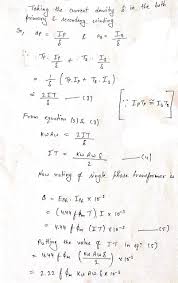 Taking the current density δ in the both
primary & secondary winding
So, ap = Ip/δ & as = Is/δ
∴ Tp Ip/δ + Ts Is/δ
= 1/δ (Tp Ip + Ts Is)
= 2IT/δ —(3) [∵ IpTp ≅ IsTs]
From equation (2) & (3)
Kw Aw = 2IT/δ
IT = Kw Aw δ/2 —(4)
Now rating of single phase transformer is
= (4.44 f ϕm T) I × 10⁻³
= 4.44 f ϕm (IT) × 10⁻³ —(5)
Putting the value of IT in eqⁿ (5)
= 4.44 f ϕm (Kw Aw δ/2) × 10⁻³
= 2.22 f ϕm Kw Aw δ × 10⁻³